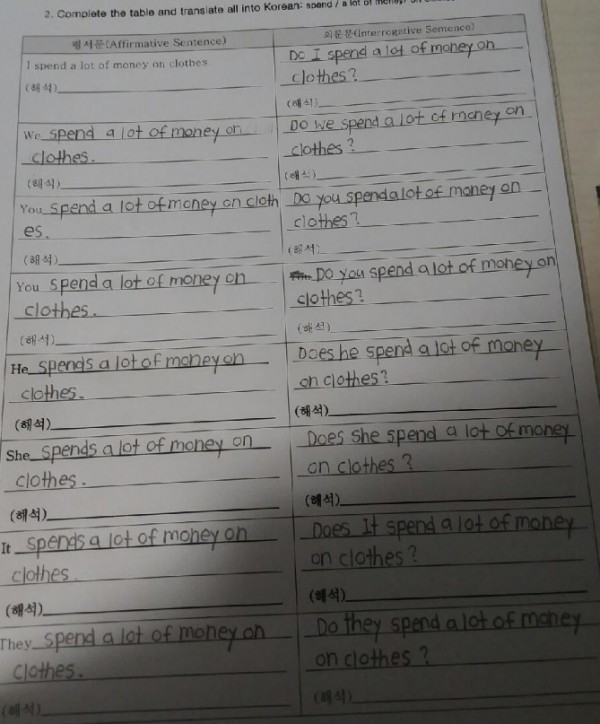 2. Complete the table and translate all into Korean: spend / a lot of money/
평서문(Affirmative Sentence)
의문문(Interrogative Sentence)
I spend a lot of money on clothes
(해석)
Do I spend a lot of money on
clothes?
(해석)
We spend a lot of money on
clothes.
(해석)
Do we spend a lot of money on
clothes?
(해석)
You spend a lot of money on cloth
es.
(해석)
Do you spend a lot of money on
clothes?
(해석)
You spend a lot of money on
clothes.
(해석)
Do you spend a lot of money on
clothes?
(해석)
He spends a lot of money on
clothes.
(해석)
Does he spend a lot of money
on clothes?
(해석)
She spends a lot of money on
clothes.
(해석)
Does she spend a lot of money
on clothes?
(해석)
It spends a lot of money on
clothes.
(해석)
Does It spend a lot of money
on clothes?
(해석)
They spend a lot of money on
clothes.
(해석)
Do they spend a lot of money
on clothes?
(해석)